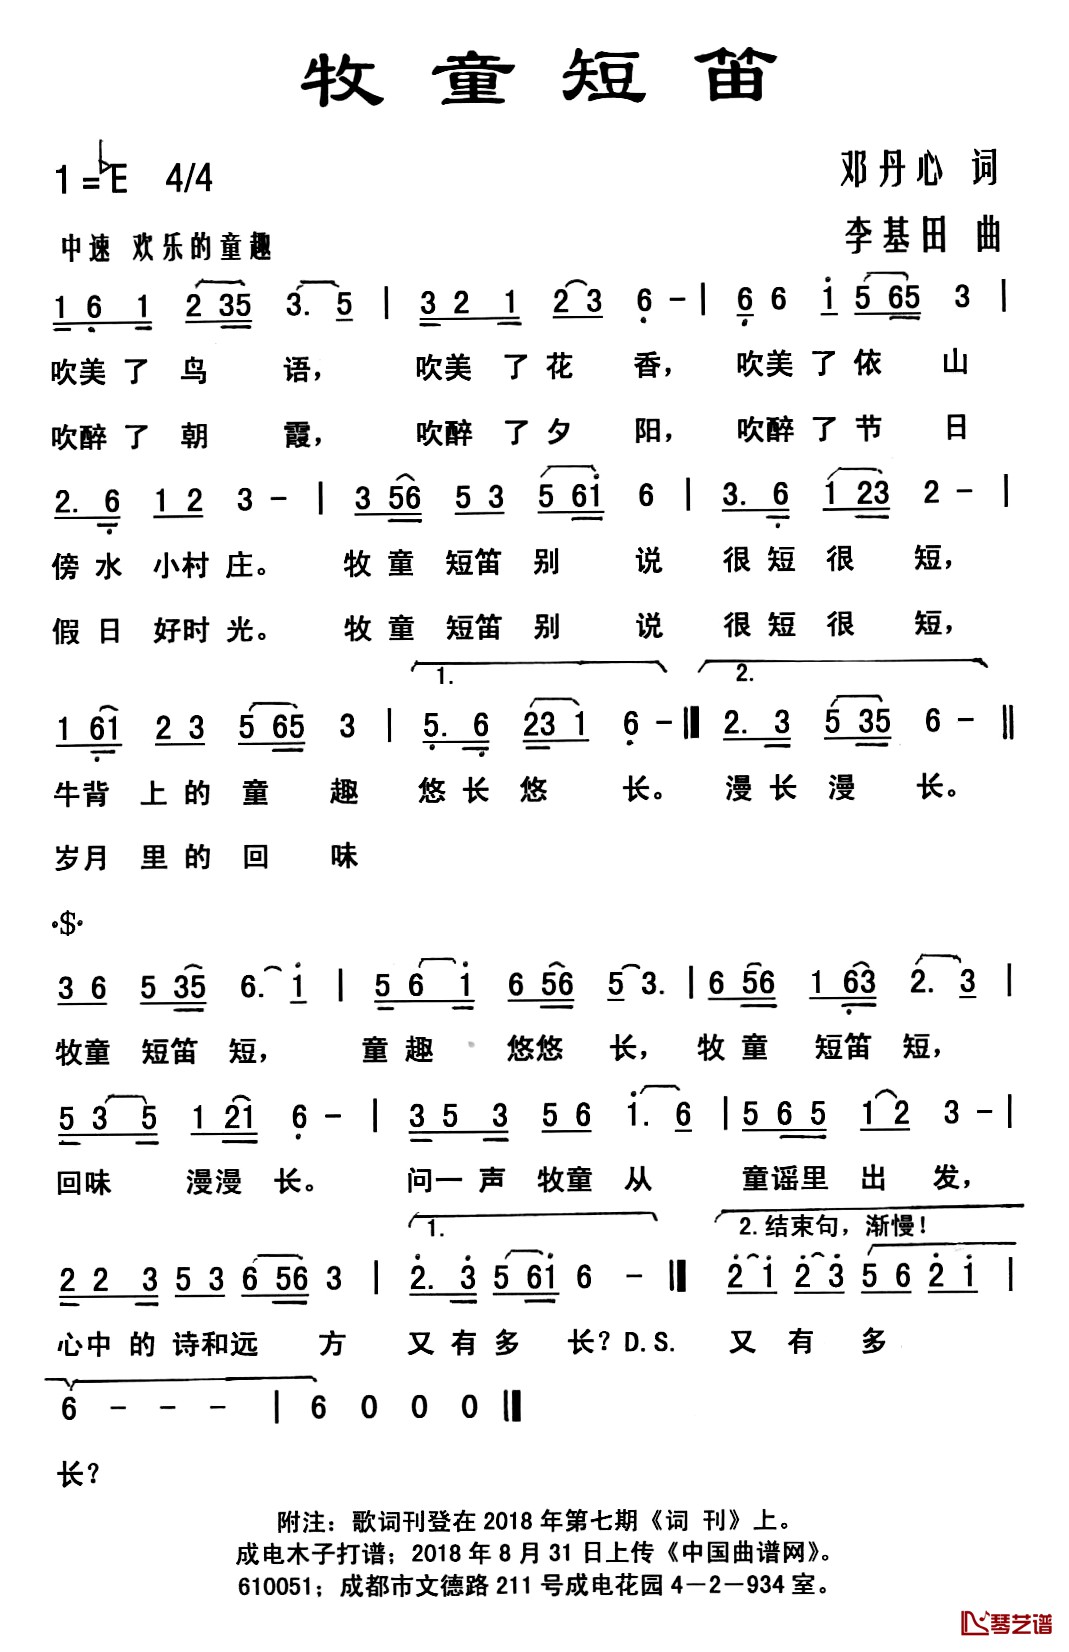 牧童短笛
1=♭E 4/4
邓丹心 词
中速 欢乐的童趣
李基田 曲
1 6 1 2 35 3. 5 | 3 2 1 2 3 6 - | 6 6 1 5 65 3 |
吹美了鸟 语， 吹美了花 香， 吹美了依 山
吹醉了朝 霞， 吹醉了夕 阳， 吹醉了节 日
2. 6 1 2 3 - | 3 56 5 3 5 61 6 | 3. 6 1 23 2 - |
傍水 小村庄。 牧童 短笛别 说 很短很 短，
假日 好时光。 牧童 短笛别 说 很短很 短，
1. 2.
1 61 2 3 5 65 3 | 5. 6 23 1 6 - ‖ 2. 3 5 35 6 - ‖
牛背 上的童 趣 悠长悠 长。 漫长漫 长。
岁月 里的回 味
·$·
3 6 5 35 6. 1 | 5 6 1 6 56 5 3. | 6 56 1 63 2. 3 |
牧童 短笛短， 童趣 悠悠长， 牧童 短笛短，
5 3 5 1 21 6 - | 3 5 3 5 6 1. 6 | 5 6 5 1 2 3 - |
回味 漫漫长。 问一声牧童从 童谣里出发，
1. 2.结束句，渐慢！
2 2 3 5 3 6 56 3 | 2. 3 5 61 6 - ‖ 2 1 2 3 5 6 2 1 |
心中的诗和远 方 又有多 长？D.S. 又有 多
6 - - - | 6 0 0 0 ‖
长？
附注：歌词刊登在2018年第七期《词 刊》上。
成电木子打谱；2018年8月31日上传《中国曲谱网》。
610051；成都市文德路211号成电花园4－2－934室。
琴艺谱